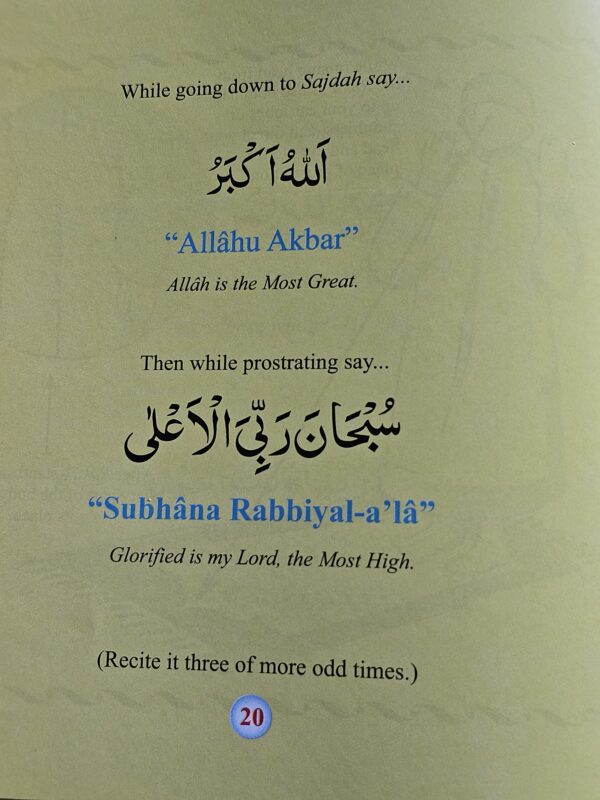 While going down to Sajdah say...
اَللّٰهُ اَكْبَرُ
“Allâhu Akbar”
Allâh is the Most Great.
Then while prostrating say...
سُبْحَانَ رَبِّيَ الْاَعْلٰى
“Subhâna Rabbiyal-a’lâ”
Glorified is my Lord, the Most High.
(Recite it three of more odd times.)
20